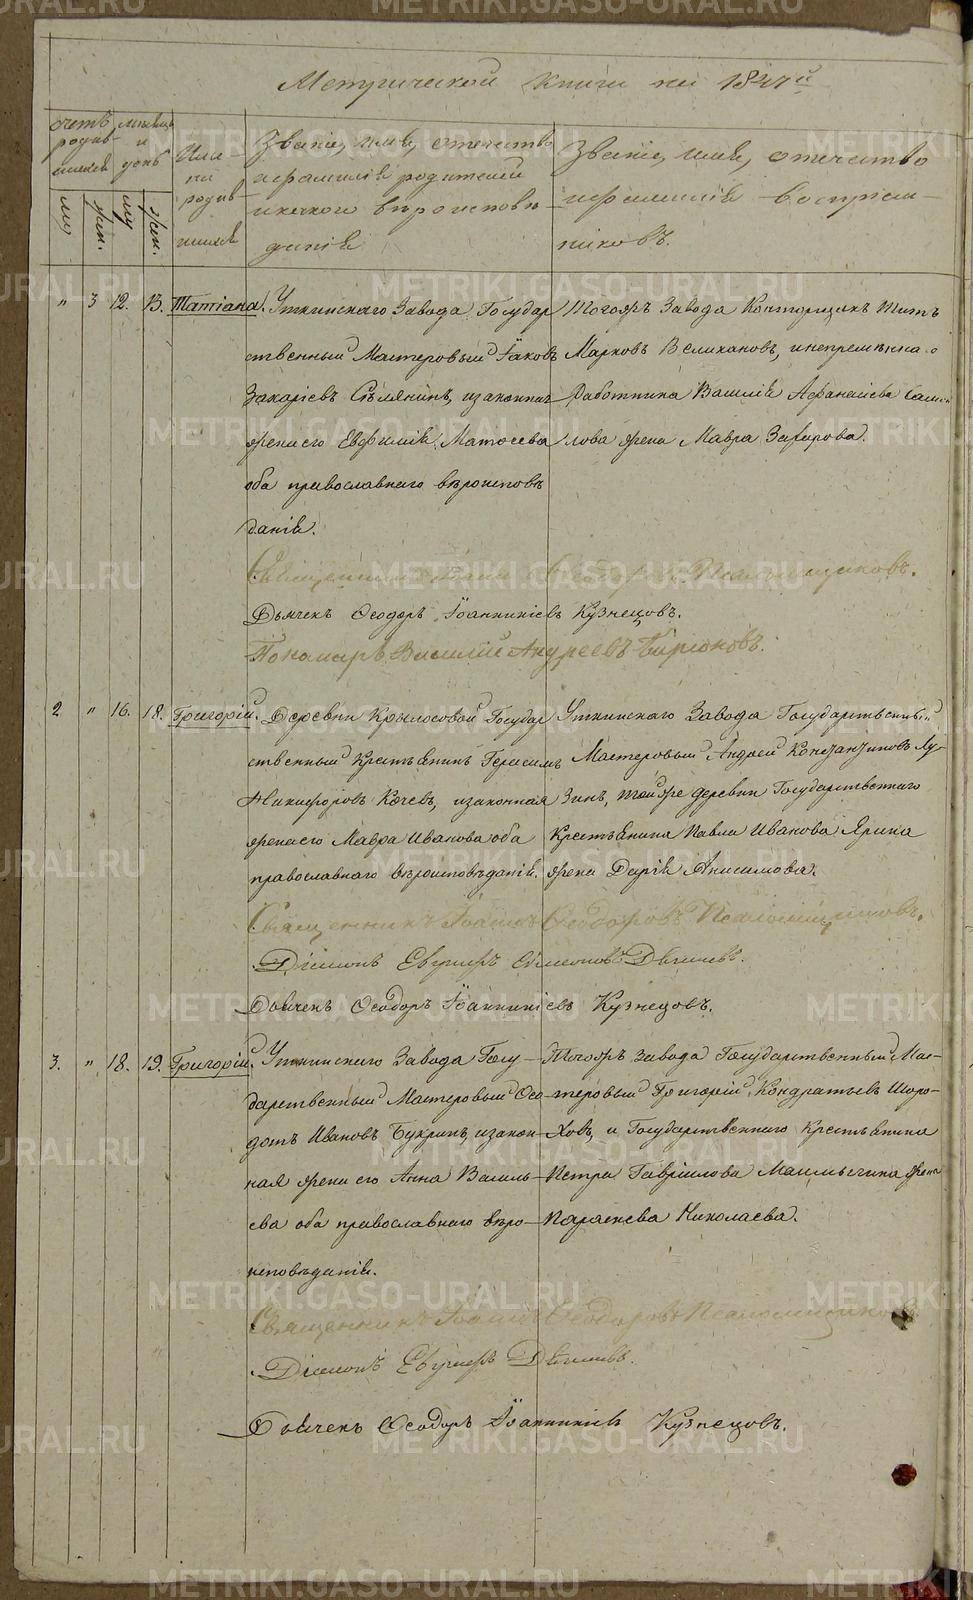 Метрической книги на 1847й
Счетъ родив-шихся
Мѣсяцъ и день
Имена родив-шихся
Званіе, имя, отчество и фамилія родителей и какого вѣроисповѣданія
Званіе, имя, отчество и фамилія воспріемниковъ.
му.
жен.
му.
жен.
„ 3 12. 13. Татіана.
Уткинскаго Завода Государ
ственный Мастеровый Іаковъ
Захаріевъ Сѣлянинъ, изаконная
жена его Евфимія Матѳеева
оба православнаго вѣроисповѣ
данія.
Тогожъ Завода Конторщикъ Титъ
Марковъ Великановъ, инепремѣннаго
Работника Василія Афанасіева
лова жена Мавра Захарова.
Священникъ Іоаннъ Ѳеодоровъ Псаломщиковъ.
Дьячекъ Ѳеодоръ Іоанникіевъ Кузнецовъ.
Пономарь Василій Андреевъ Бирюковъ.
2 „ 16. 18. Григорій.
Деревни Крылосовой Государ
ственный Крестьянинъ Герасимъ
Никифоровъ Кочевъ, изаконная
жена его Мавра Иванова оба
православнаго вѣроисповѣданія.
Уткинскаго Завода Государственный
Мастеровый Андрей Константиновъ Лу-
зинъ, тойже деревни Государственнаго
Крестьянина Павла Иванова Ярина
жена Дарія Анисимова.
Священникъ Іоаннъ Ѳеодоровъ Псаломщиковъ.
Діаконъ Евгенифъ Симеоновъ
Дьячекъ Ѳеодоръ Іоанникіевъ Кузнецовъ.
3. „ 18. 19. Григорій.
Уткинскаго Завода Госу-
дарственный Мастеровый Ѳео-
дотъ Ивановъ Букринъ, изакон-
ная жена его Анна Василь-
ева оба православнаго вѣро-
исповѣданія.
Тогожъ завода Государственный Мас-
теровый Григорій Кондратьевъ Шоро-
ховъ, и Государственнаго Крестьянина
Петра Гавриилова жена
Параскева Николаева.
Священникъ Іоаннъ Ѳеодоровъ Псаломщиковъ
Діаконъ
Дьячекъ Ѳеодоръ Іоанникіевъ Кузнецовъ.
METRIKI.GASO-URAL.RU